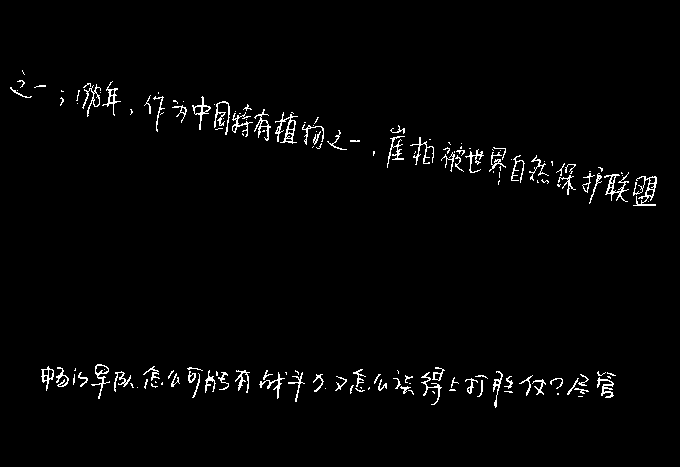 之一；1998年，作为中国特有植物之一，崖柏被世界自然保护联盟
畅的军队怎么可能有战斗力又怎么谈得上打胜仗？尽管